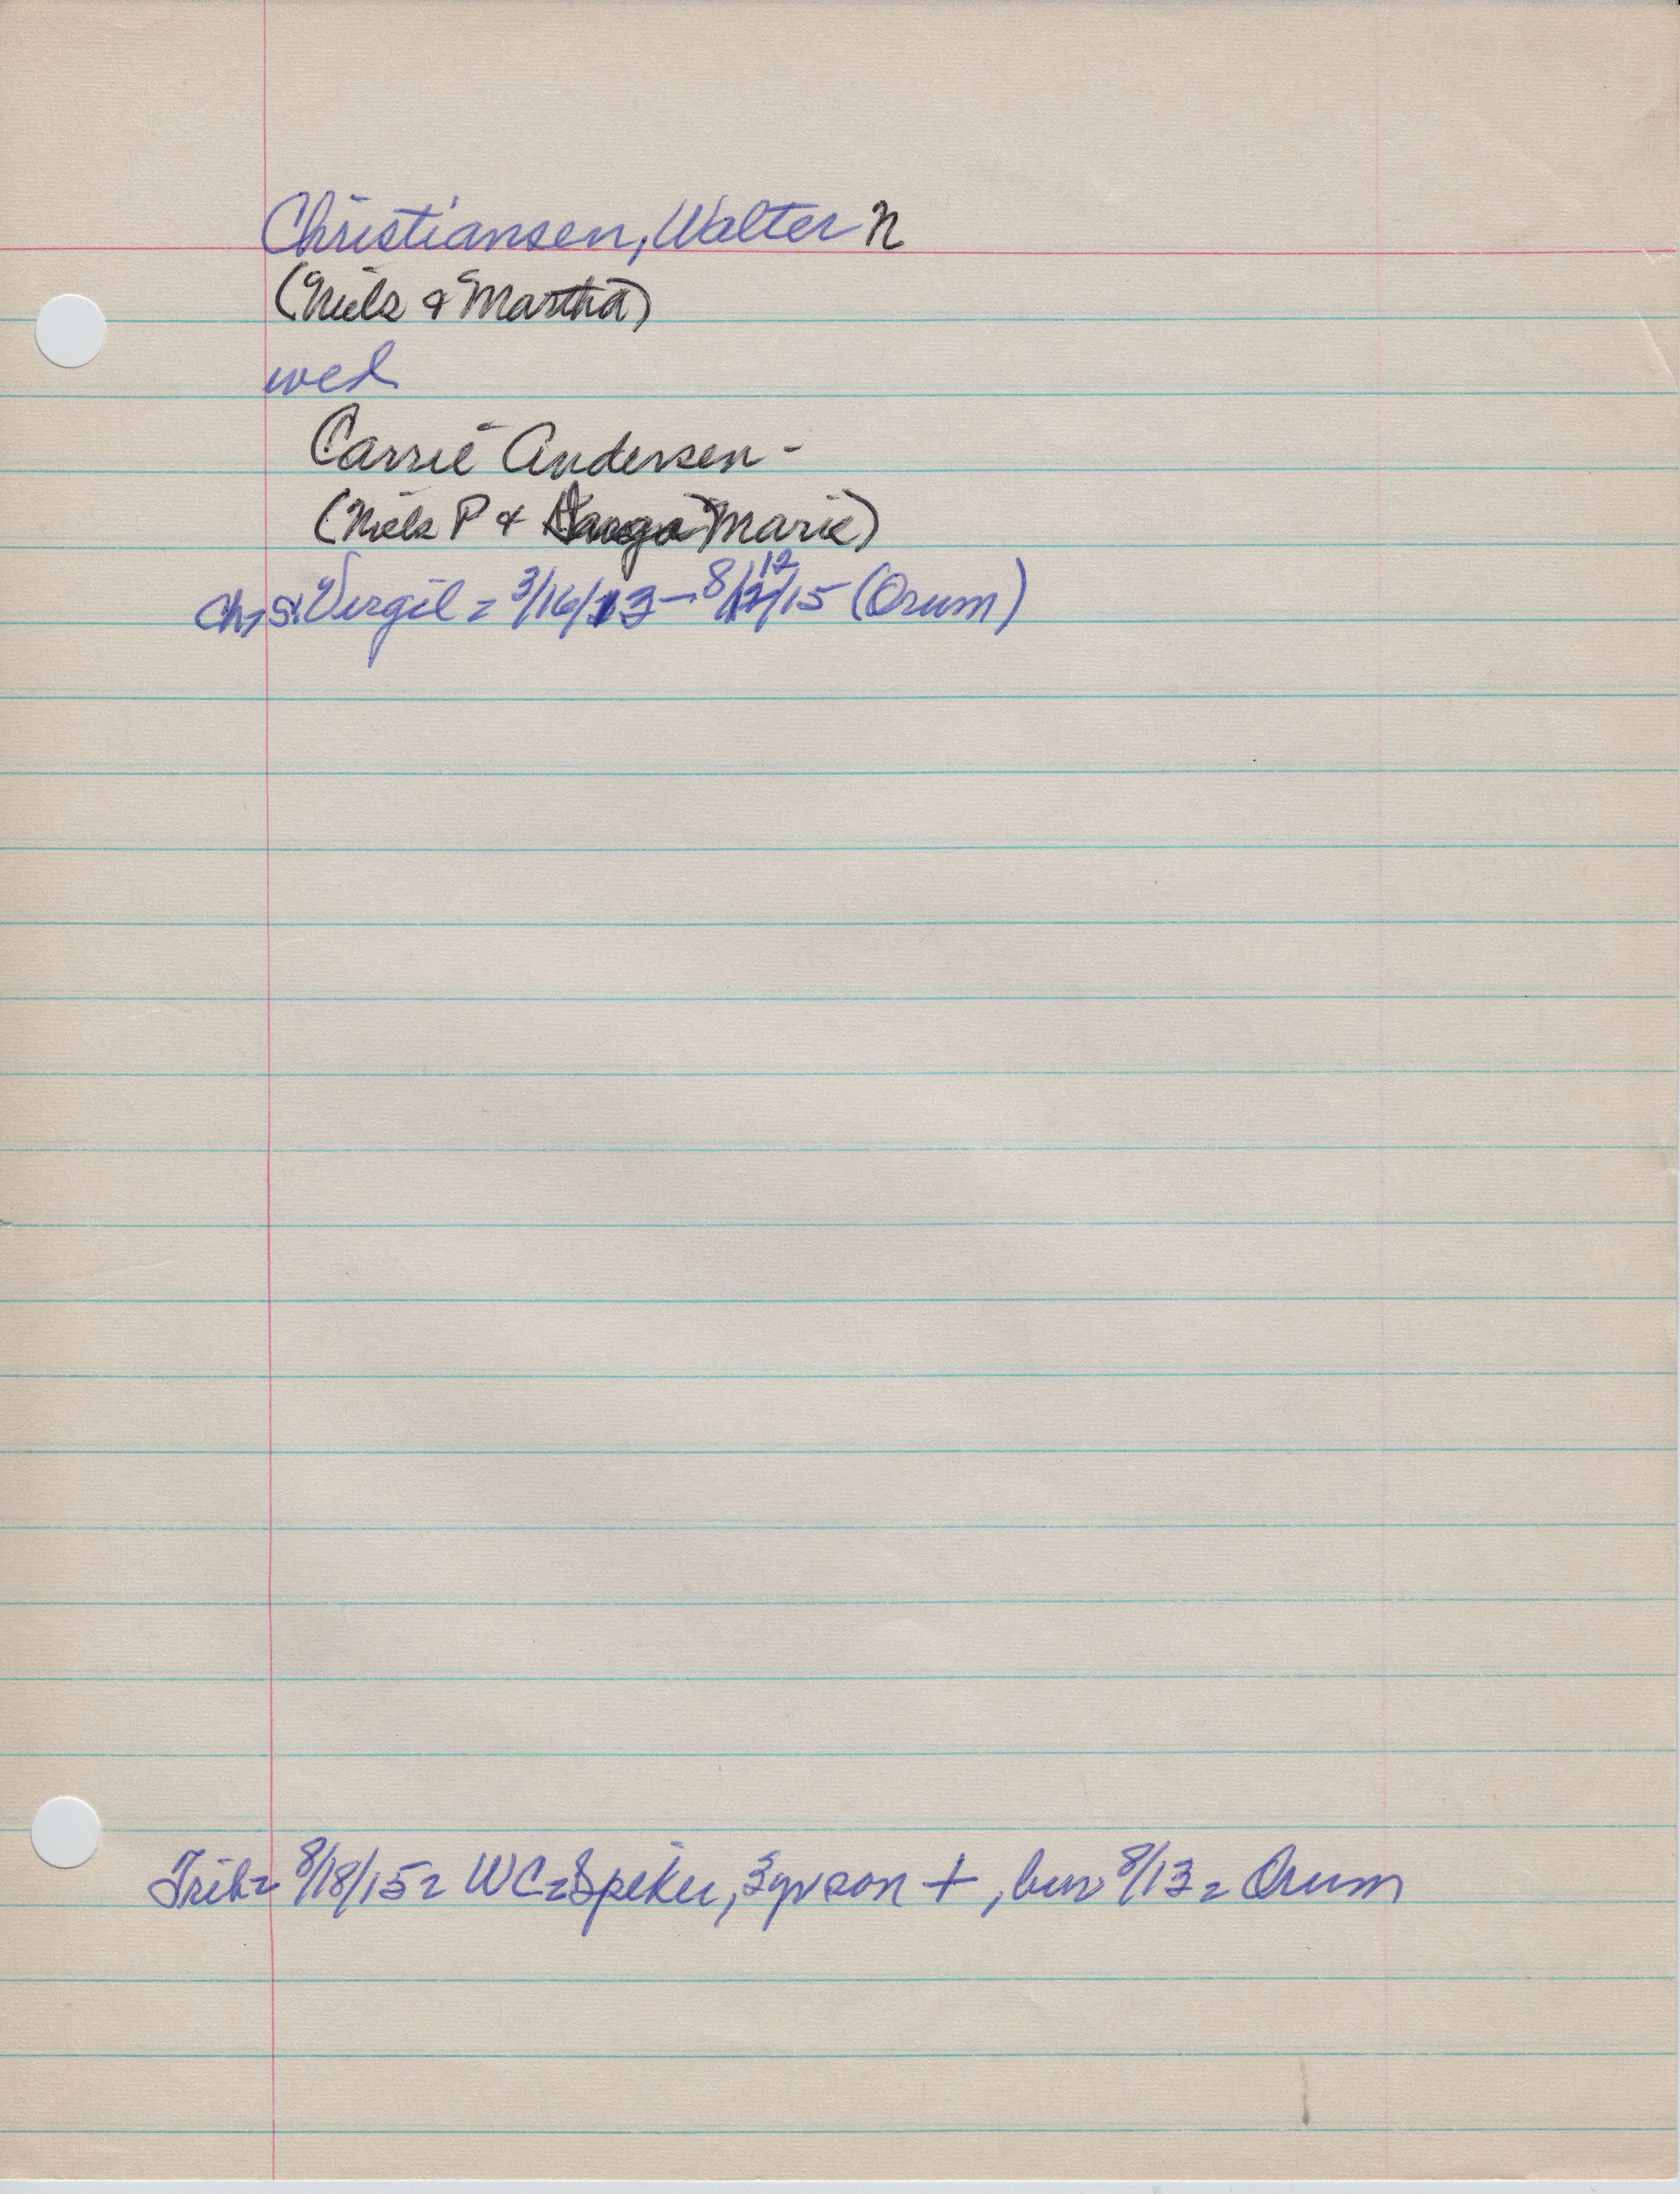 Christiansen, Walter N
(Niels & Martha)
wed
Carrie Andersen -
(Niels P & Marie)
Ch, s: Virgil = 3/16/13 - 8/12/15 (Orum)
Trib = 8/18/15 = WC = Spiker, 3 yr son +, bur 8/13 = Orum